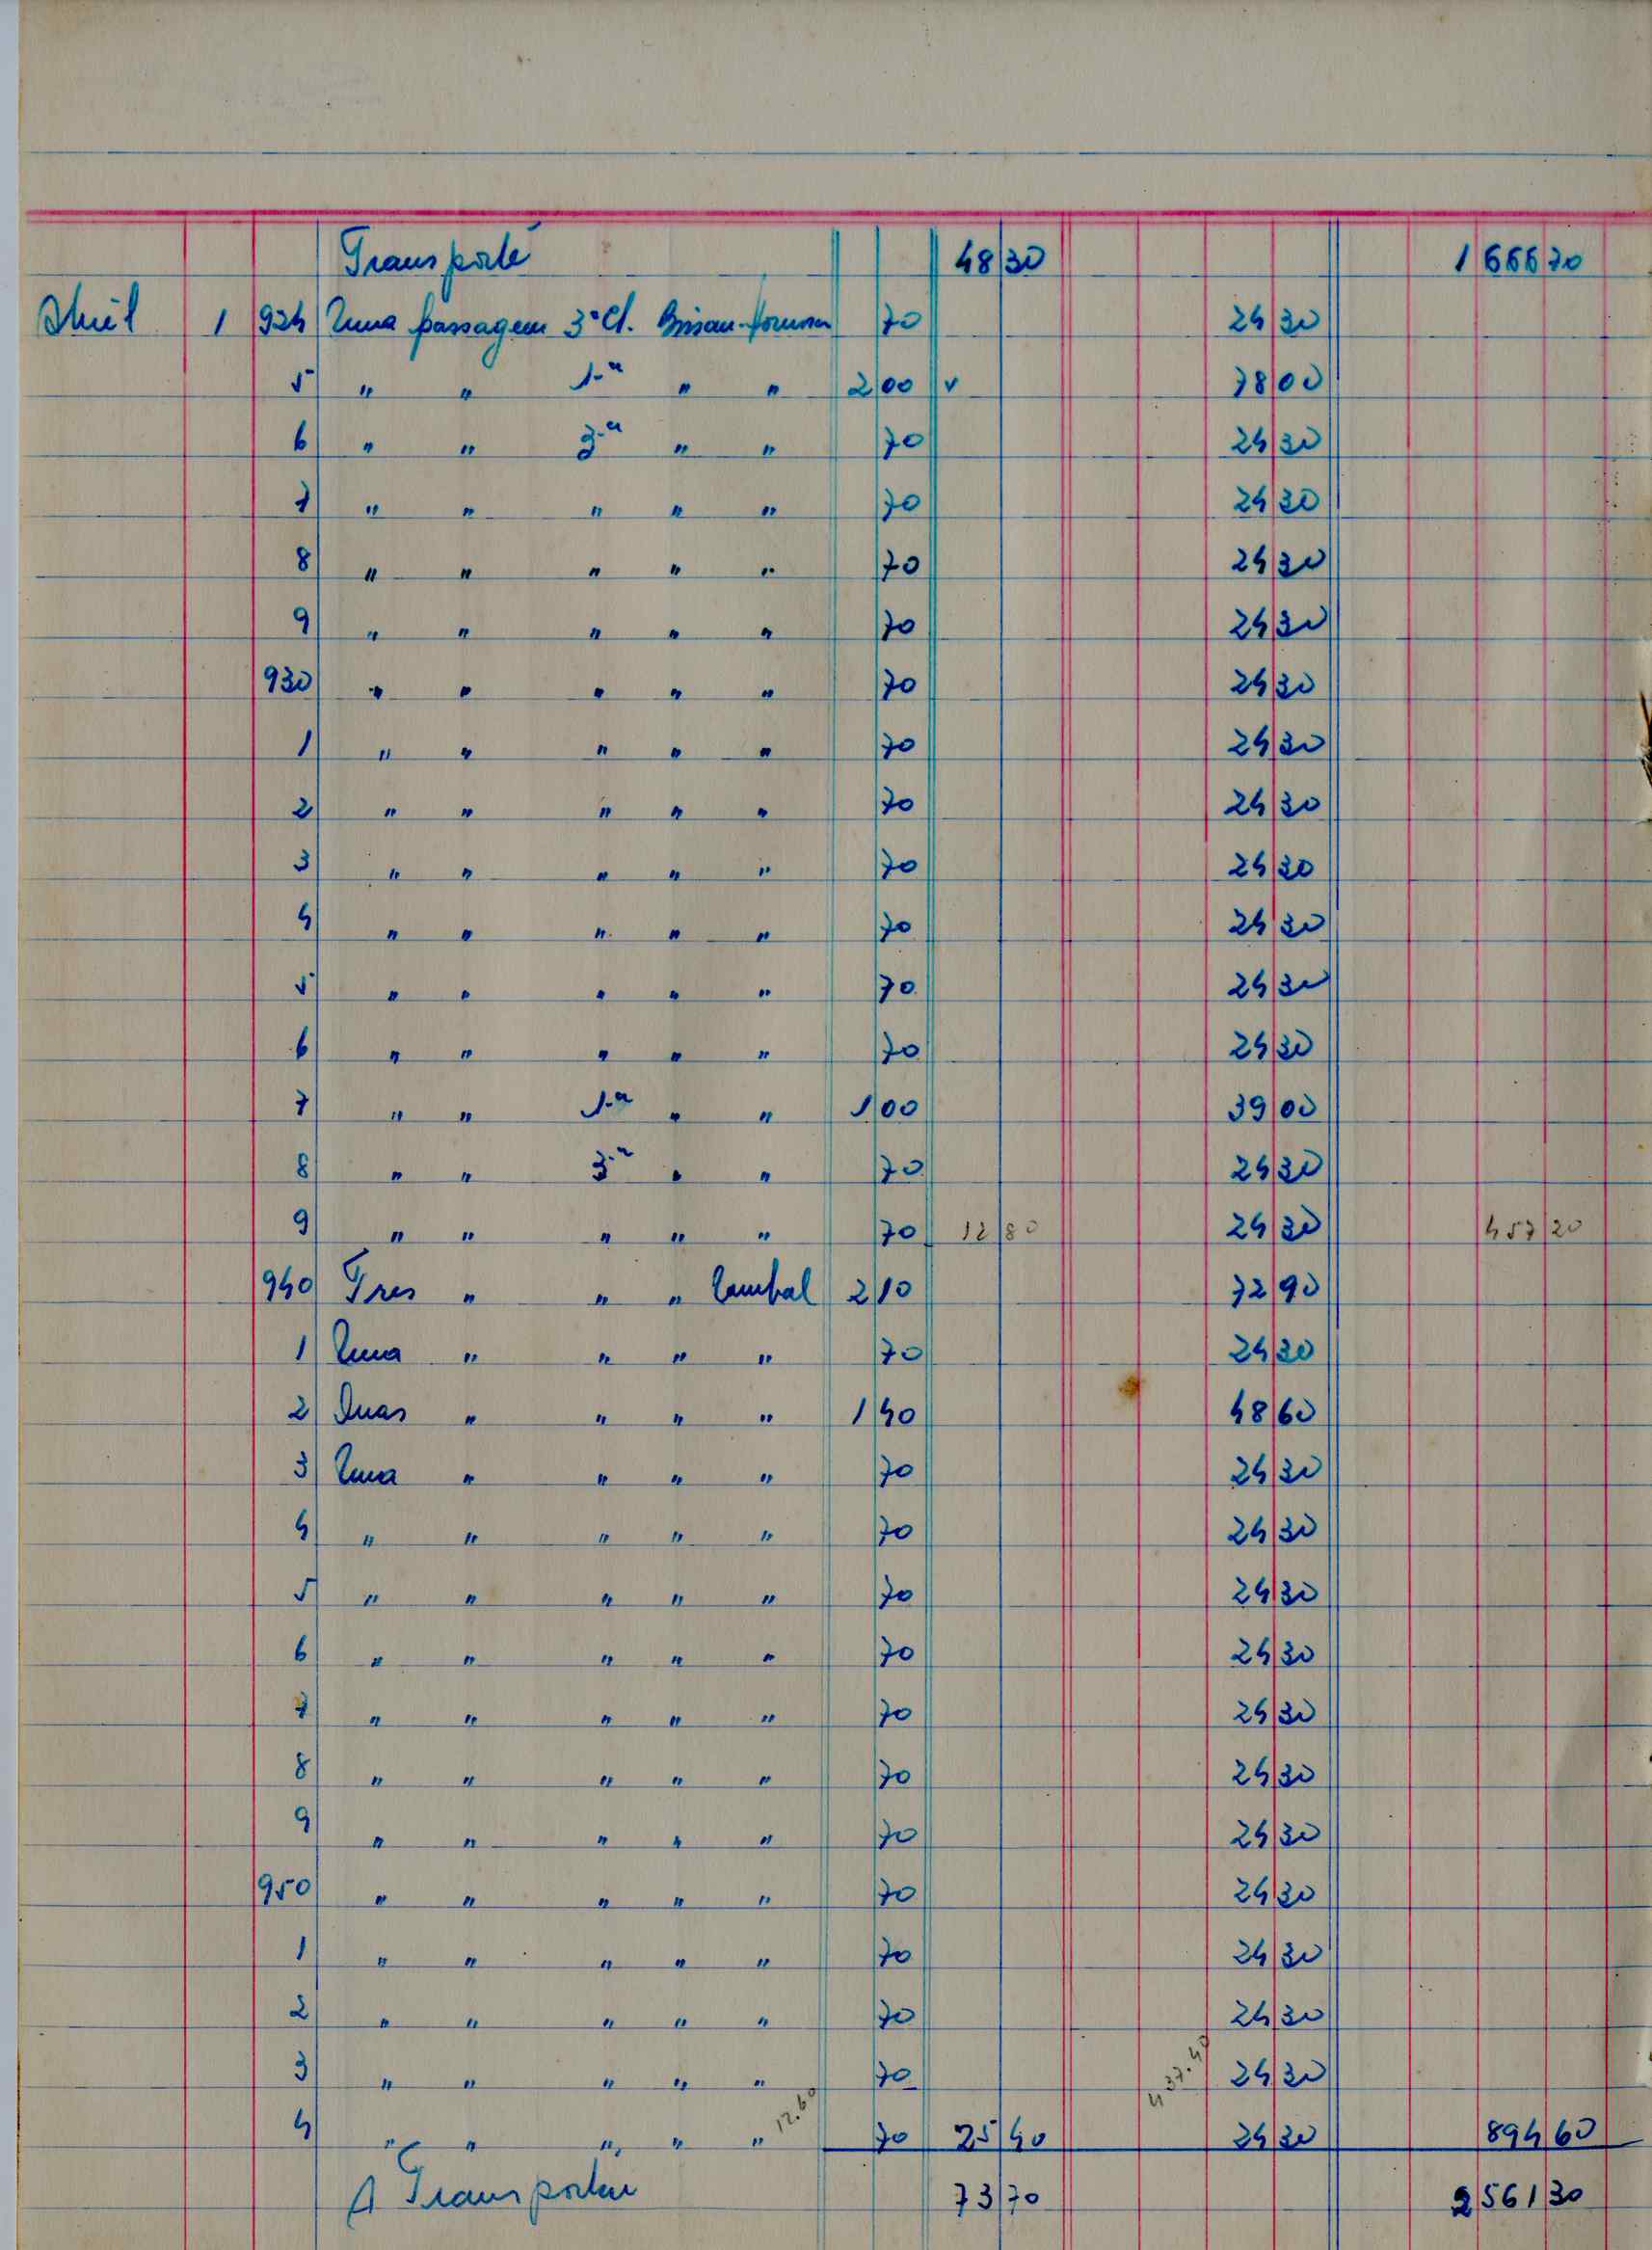 Transporte 48 30 1 666 70
Abril 1 924 Uma passagem 3ª Cl. Bissau-Formosa 70 24 30
5 " " 1.ª " " 2 00 v 78 00
6 " " 3.ª " " 70 24 30
7 " " " " " 70 24 30
8 " " " " " 70 24 30
9 " " " " " 70 24 30
930 " " " " " 70 24 30
1 " " " " " 70 24 30
2 " " " " " 70 24 30
3 " " " " " 70 24 30
4 " " " " " 70 24 30
5 " " " " " 70 24 30
6 " " " " " 70 24 30
7 " " 1.ª " " 1 00 39 00
8 " " 3.ª " " 70 24 30
9 " " " " " 70 12 80 24 30 457 20
940 Tres " " " Tombal 2 10 72 90
1 Uma " " " " 70 24 30
2 Duas " " " " 1 40 48 60
3 Uma " " " " 70 24 30
4 " " " " " 70 24 30
5 " " " " " 70 24 30
6 " " " " " 70 24 30
7 " " " " " 70 24 30
8 " " " " " 70 24 30
9 " " " " " 70 24 30
950 " " " " " 70 24 30
1 " " " " " 70 24 30
2 " " " " " 70 24 30
3 " " " " " 70 437.40 24 30
4 " " " " " 12.60 70 25 40 24 30 894 60
A Transportar 73 70 2 561 30